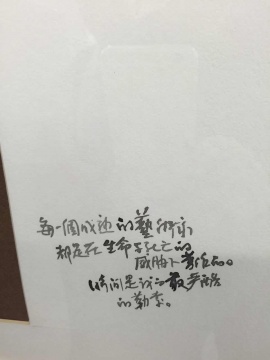 每一個成迅的藝術家
都是在生命與死亡的
威脅下著作的。
時间是我的最严酷
的勒索。